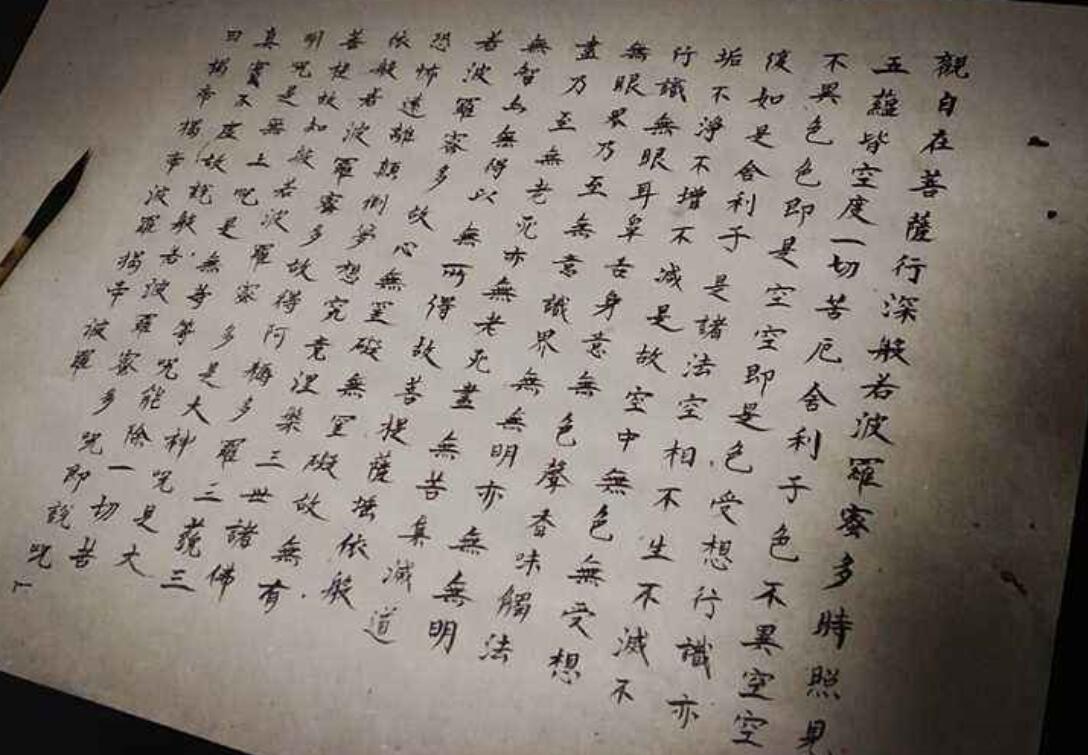 觀自在菩薩行深般若波羅蜜多時照見
五蘊皆空度一切苦厄舍利子色不異空空
不異色色即是空空即是色受想行識亦
復如是舍利子是諸法空相不生不滅不
垢不淨不增不減是故空中無色無受想
行識無眼耳鼻舌身意無色聲香味觸法
無眼界乃至無意識界無無明亦無無明
盡乃至無老死亦無老死盡無苦集滅道
無智亦無得以無所得故菩提薩埵依般
若波羅蜜多故心無罣礙無罣礙故無有
恐怖遠離顛倒夢想究竟涅槃三世諸佛
依般若波羅蜜多故得阿耨多羅三藐三
菩提故知般若波羅蜜多是大神咒是大
明咒是無上咒是無等等咒能除一切苦
真實不虛故說般若波羅蜜多咒即說咒
曰揭帝揭帝波羅揭帝波羅